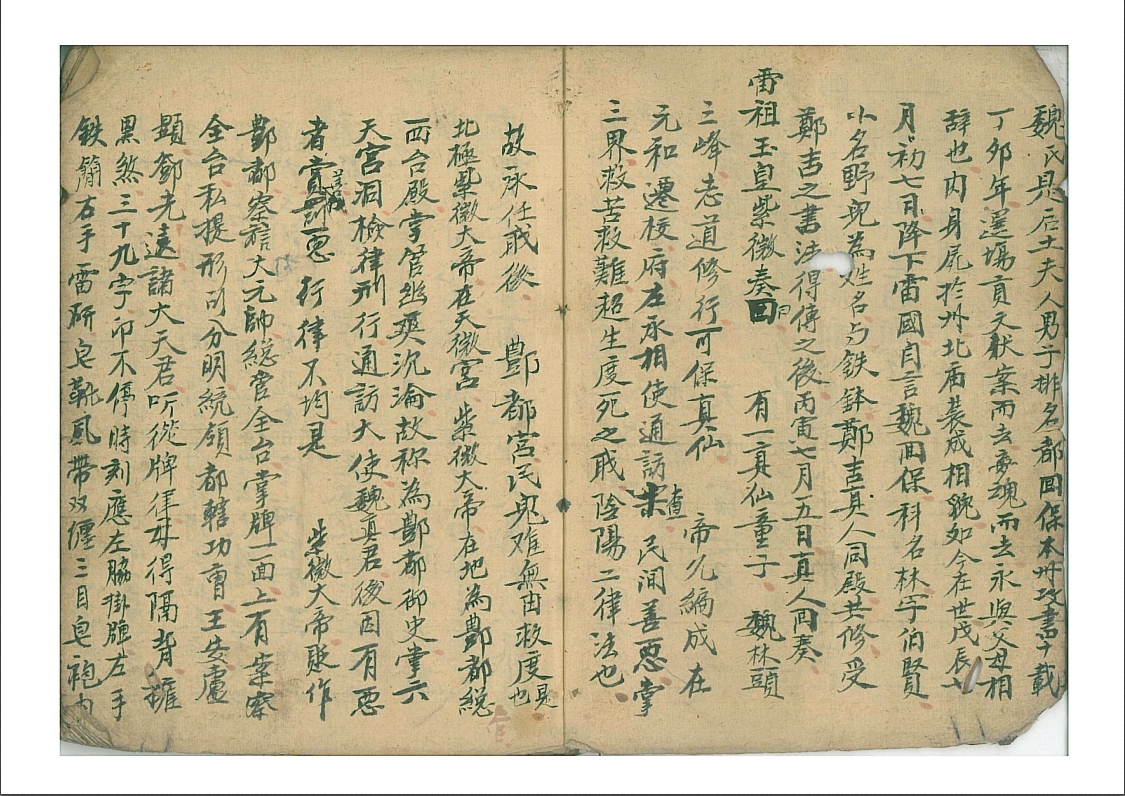 魏氏見后土夫人男子排名都回保本州攻書十載
丁卯年選塲頁文獻案而去夢魂而去永與父母相
辞也肉身屍於州北廟裝成相貌如今在世戊辰七
月初七日降下雷國自言魏回保科名林字伯賢
小名野兒為姓名与鉄鉢鄭吉真人同殿共修受
鄭吉之書法得傳之後丙寅七月五日真人回奏
雷祖玉皇紫微奏回 有一真仙童子 魏林頭
三峰志道修行可保真仙 帝允編成在
元和遷校府左丞相使通訪 查 民间善惡掌
三界救苦救難超生度死之戢陰陽二律法也
故承任戢後 酆都宮民兒难無由救度也 見
北極紫微大帝在天微宮 紫微大帝在地為酆都総
西台殿掌管幽爽沉淪故称為酆都御史掌六
天宮洞檢律刑行通訪大使魏真君後因有惡
者賞罰惡 行律不均是 紫微大帝敗作
酆都察 大元帥総官全台掌牌一面上有案察
全台私提形司分明統領都轄功曹王 盧
顯鄧光遠諸大天君听從牌律毋得隔背 摧
黑煞三十九字印不停時刻應左脇掛牌左手
鉄簡右手雷斫皂靴風带双纒三目皂袍内